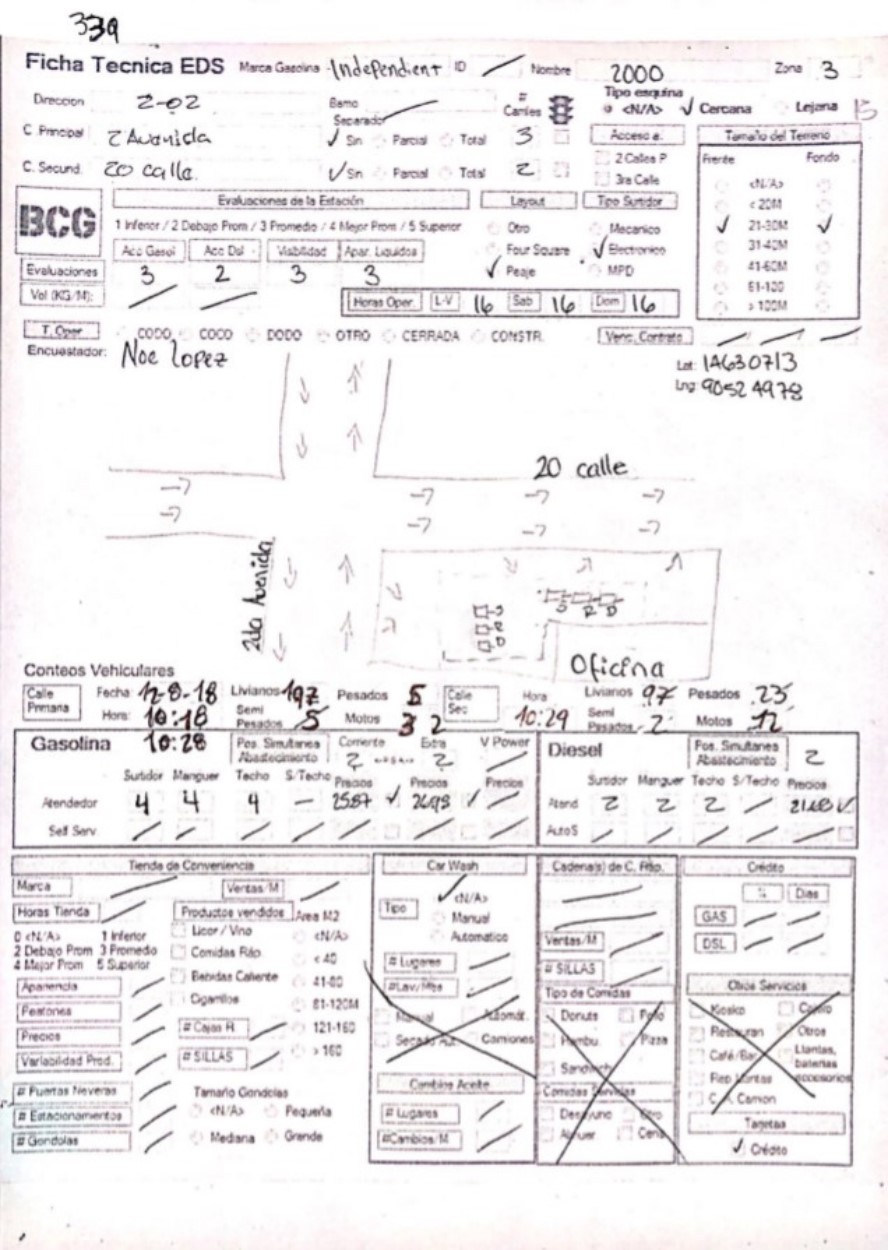 339
Ficha Tecnica EDS Marca Gasolina Independient ID Nombre 2000 Zona 3
Direccion 2-02 Barrio # Carriles Tipo esquina <N/A> Cercana Lejana
C. Principal 2 Avenida Separador Sin Parcial Total 3 Acceso a: Tamaño del Terreno
C. Secund. 20 calle. Sin Parcial Total 2 2 Calles P 3ra Calle Frente Fondo
BCG Evaluaciones de la Estación Layout Tipo Surtidor <N/A>
< 20M
1 Inferior / 2 Debajo Prom / 3 Promedio / 4 Mejor Prom / 5 Superior Otro Mecanico 21-30M
Acc Gasol Acc Dsl Visibilidad Apar. Liquidos Four Square Electronico 31-40M
Evaluaciones 3 2 3 3 Peaje MPD 41-60M
61-100
Vol (KG/M): Horas Oper. L-V 16 Sab 16 Dom 16 > 100M
T. Oper CODO COCO DODO OTRO CERRADA CONSTR. Venc. Contrato
Encuestador: Noe Lopez
Lat: 14630713
Lng: 90524978
20 calle
2da Avenida
S R D
S R D
Oficina
Conteos Vehiculares
Calle Primaria Fecha 12-8-18 Livianos 197 Pesados 5 Calle Sec Hora Livianos 97 Pesados 23
Hora: 10:18 Semi Pesados 5 Motos 32 10:29 Semi Pesados 2 Motos 12
10:28
Gasolina Pos. Simultanea Abastecimiento Corriente 2 Extra 2 V Power Diesel Pos. Simultanea Abastecimiento 2
Surtidor Manguer Techo S/Techo Precios Precios Precios Surtidor Manguer Techo S/Techo Precios
Atendedor 4 4 4 25.87 26.98 Atend 2 2 2 21.68
Self Serv. AutoS
Tienda de Conveniencia Car Wash Cadena(s) de C. Ráp. Crédito
Marca Ventas/M <N/A> % Dias
Horas Tienda Productos vendidos Area M2 Tipo Manual GAS
0 <N/A> 1 Inferior Licor / Vino <N/A> Automatico Ventas/M DSL
2 Debajo Prom 3 Promedio Comidas Ráp. < 40
4 Mejor Prom 5 Superior # Lugares # SILLAS
Apariencia Bebidas Caliente 41-80 #Lav/Mes Tipo de Comidas Otros Servicios
Peatones Cigarrillos 81-120M Manual Automát. Donuts Pollo Kiosko Cajero
Precios # Cajas R. 121-160 Secado Aut. Camiones Hambu. Pizza Restauran Otros
Variabilidad Prod. # SILLAS > 160 Sandwich Café/Bar Llantas, baterias accesorios
# Puertas Neveras Tamaño Gondolas Cambios Aceite Comidas Servicios Rep Llantas
# Estacionamientos <N/A> Pequeña # Lugares Desayuno C. A. Camion
# Gondolas Mediana Grande #Cambios/M Almuer Cena Tarjetas
Crédito